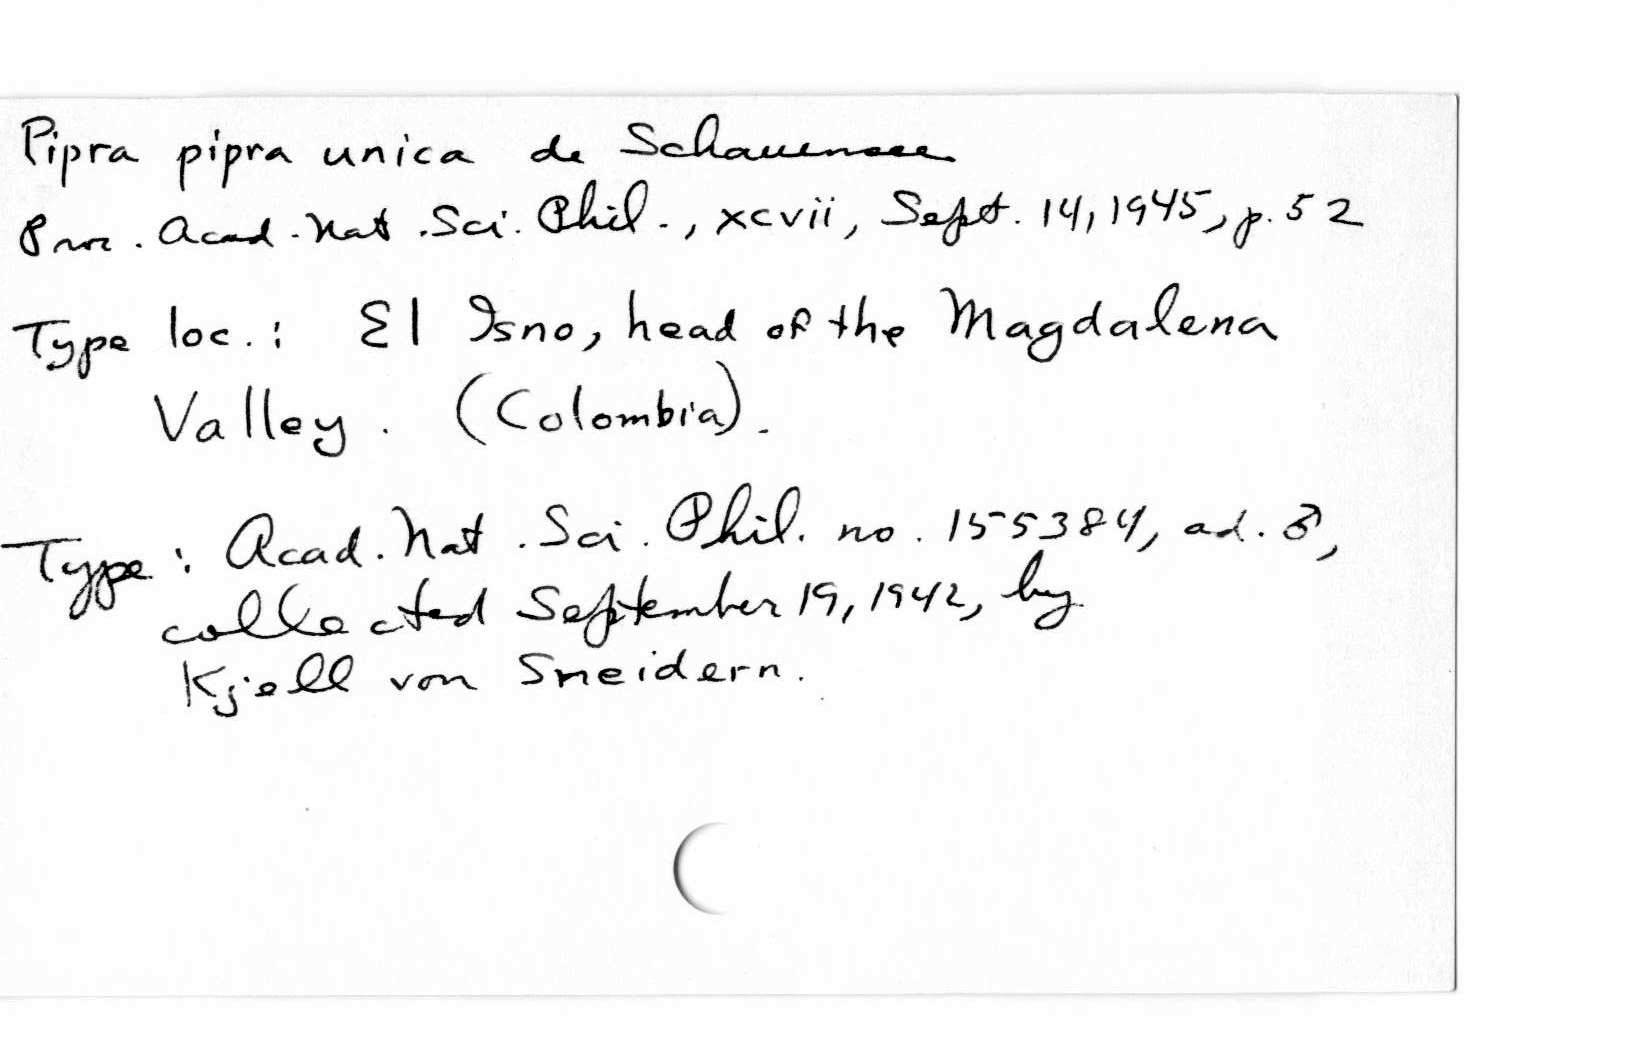 Pipra pipra unica de Schauensee
Proc. Acad. Nat. Sci. Phil., xcvii, Sept. 14, 1945, p. 52
Type loc.: El Isno, head of the Magdalena
Valley. (Colombia).
Type: Acad. Nat. Sci. Phil. no. 155384, ad. ♂,
collected September 19, 1942, by
Kjell von Sneidern.